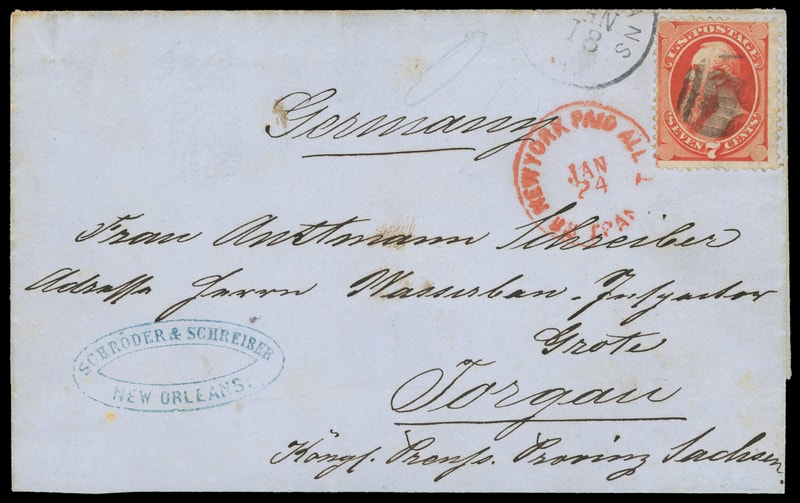 ANS
JAN
18
U.S. POSTAGE
SEVEN 7 CENTS
Germany
NEW YORK PAID ALL
JAN
24
BR. TRAN
Frau Amtmann Schreiber
Adresse Herrn Wasserbau-Inspector
Grote
SCHRÖDER & SCHREIBER
NEW ORLEANS.
Torgau
Königl. Preuss. Provinz Sachsen.